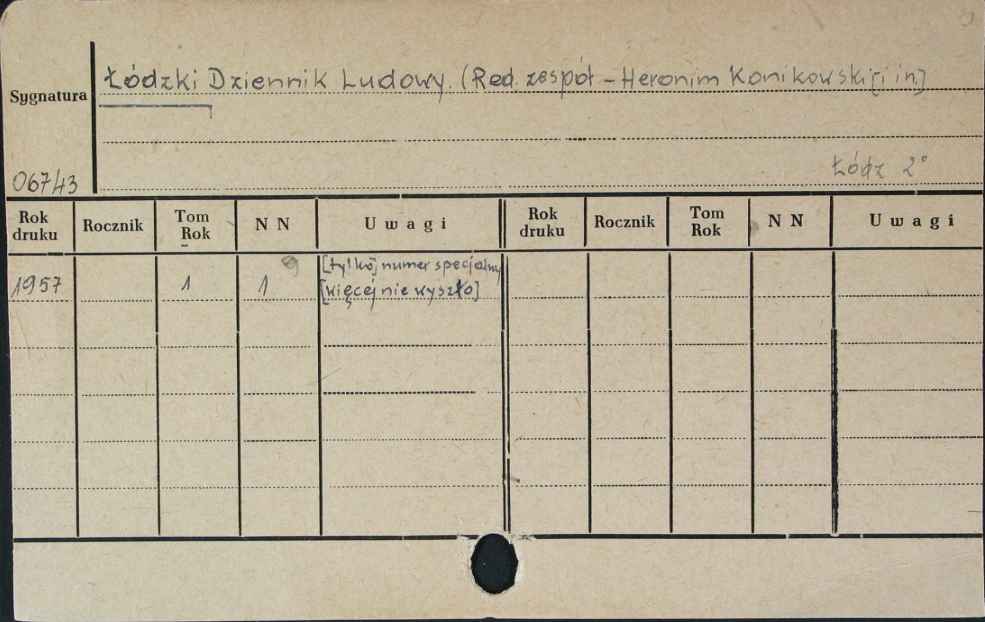 Łódzki Dziennik Ludowy. (Red. zespół – Heronim Konikowski [i in.]
Sygnatura
06743
Łódz 2°
Rok druku Rocznik Tom Rok N N Uwagi Rok druku Rocznik Tom Rok N N Uwagi
1957 1 1 [tylko] numer specjalny
[więcej nie wyszło]